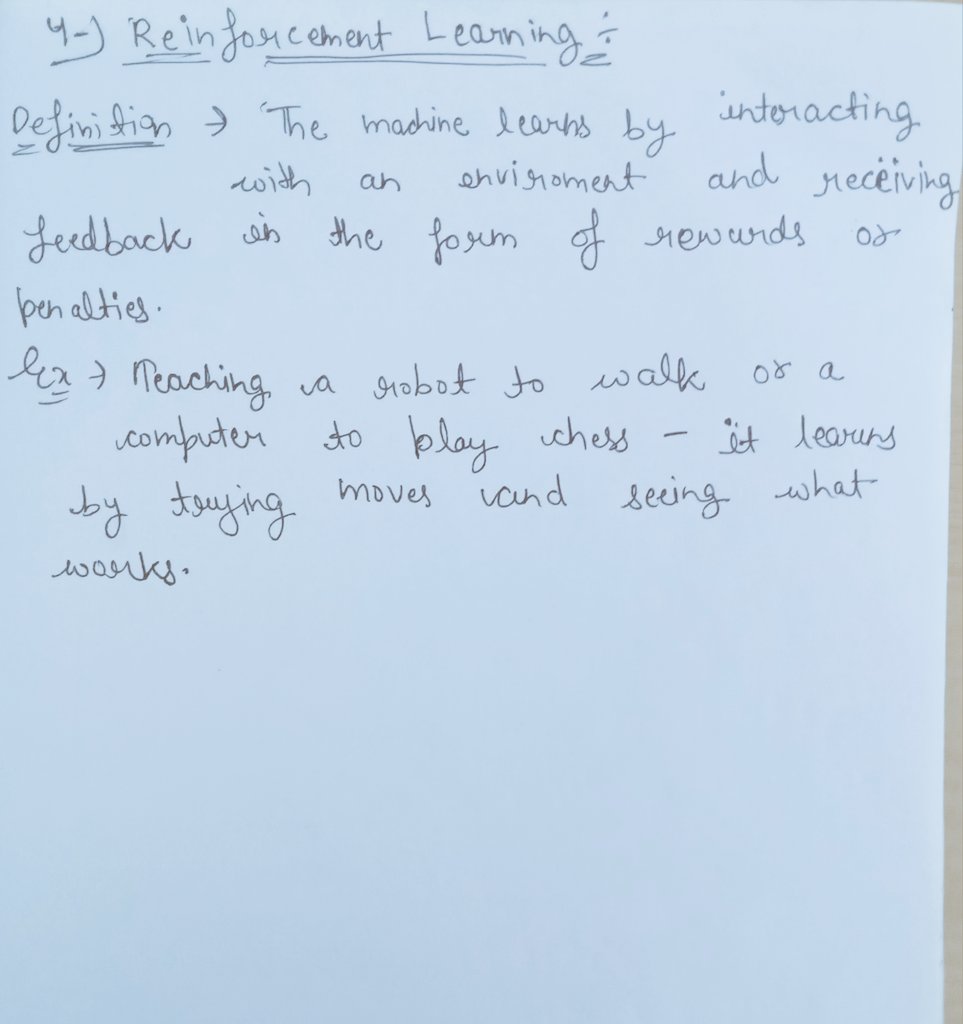 4-) Reinforcement Learning :-
Definition → The machine learns by interacting
with an enviroment and receiving
feedback in the form of rewards or
penalties.
Ex → Teaching a robot to walk or a
computer to play chess - it learns
by trying moves and seeing what
works.